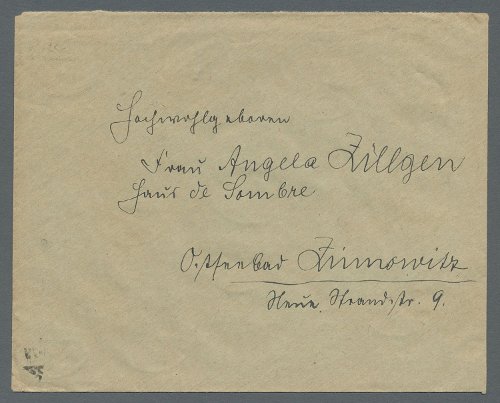 Hochwohlgeboren
Frau Angela Zillgen
Haus de Sombre
Ostseebad Zinnowitz
Neue Strandstr. 9.